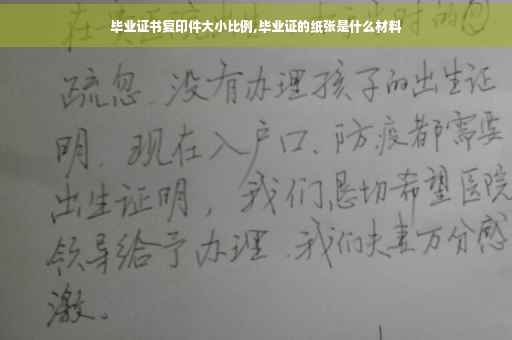 毕业证书复印件大小比例,毕业证的纸张是什么材料
疏忽、没有办理孩子的出生证
明、现在入户口、防疫都需要
出生证明，我们恳切希望医院
领导给予办理、我们夫妻万分感
激。